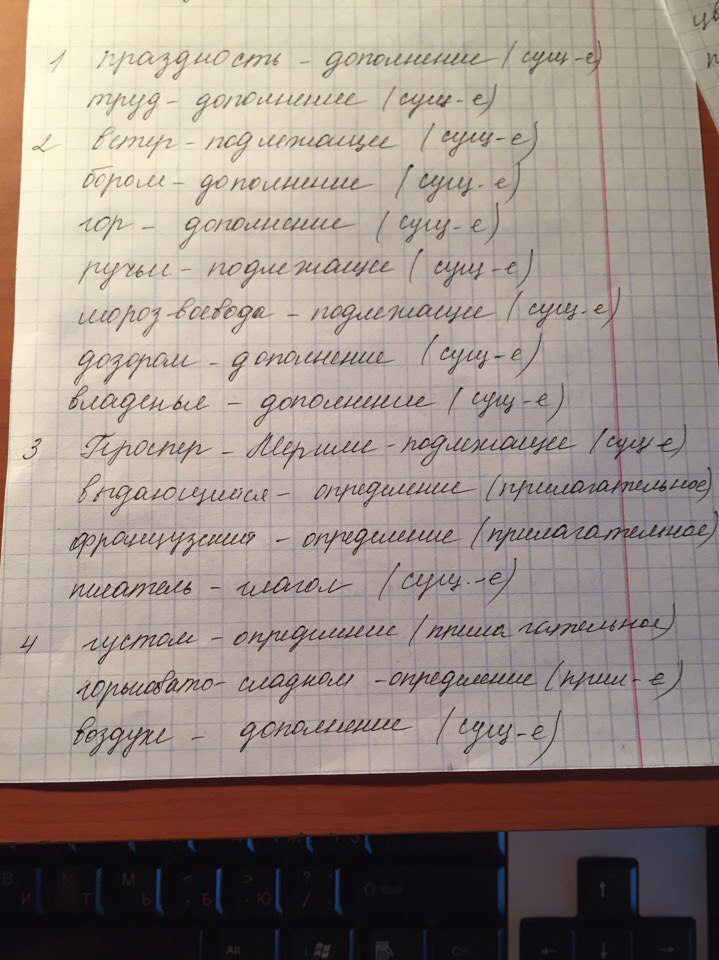 1 праздность – дополнение (сущ-е)
труд – дополнение (сущ-е)
2 ветер – подлежащие (сущ-е)
бором – дополнение (сущ-е)
гор – дополнение (сущ-е)
ручьи – подлежащие (сущ-е)
мороз-воевода – подлежащие (сущ-е)
дозором – дополнение (сущ-е)
владенья – дополнение (сущ-е)
3 Проспер – Мериме – подлежащее (сущ-е)
выдающийся – определение (прилагательное)
французский – определение (прилагательное)
писатель – глагол (сущ.-е)
4 густом – определение (прилагательное)
горьковато-сладком – определение (прил-е)
воздухе – дополнение (сущ-е)